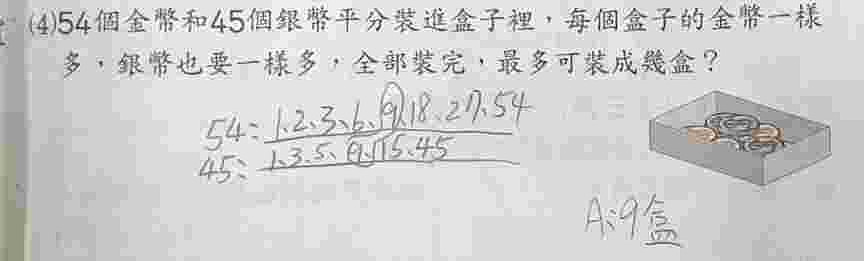 (4)54個金幣和45個銀幣平分裝進盒子裡，每個盒子的金幣一樣
多，銀幣也要一樣多，全部裝完，最多可裝成幾盒？
54：1、2、3、6、9、18、27、54
45：1、3、5、9、15、45
A：9盒